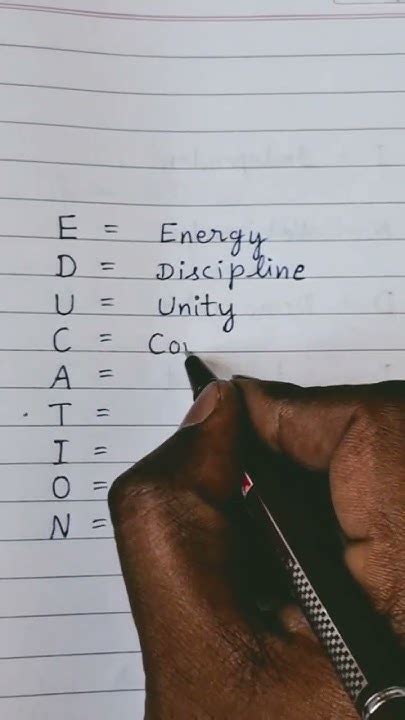 E = Energy
D = Discipline
U = Unity
C = Co
A =
T =
I =
O =
N =